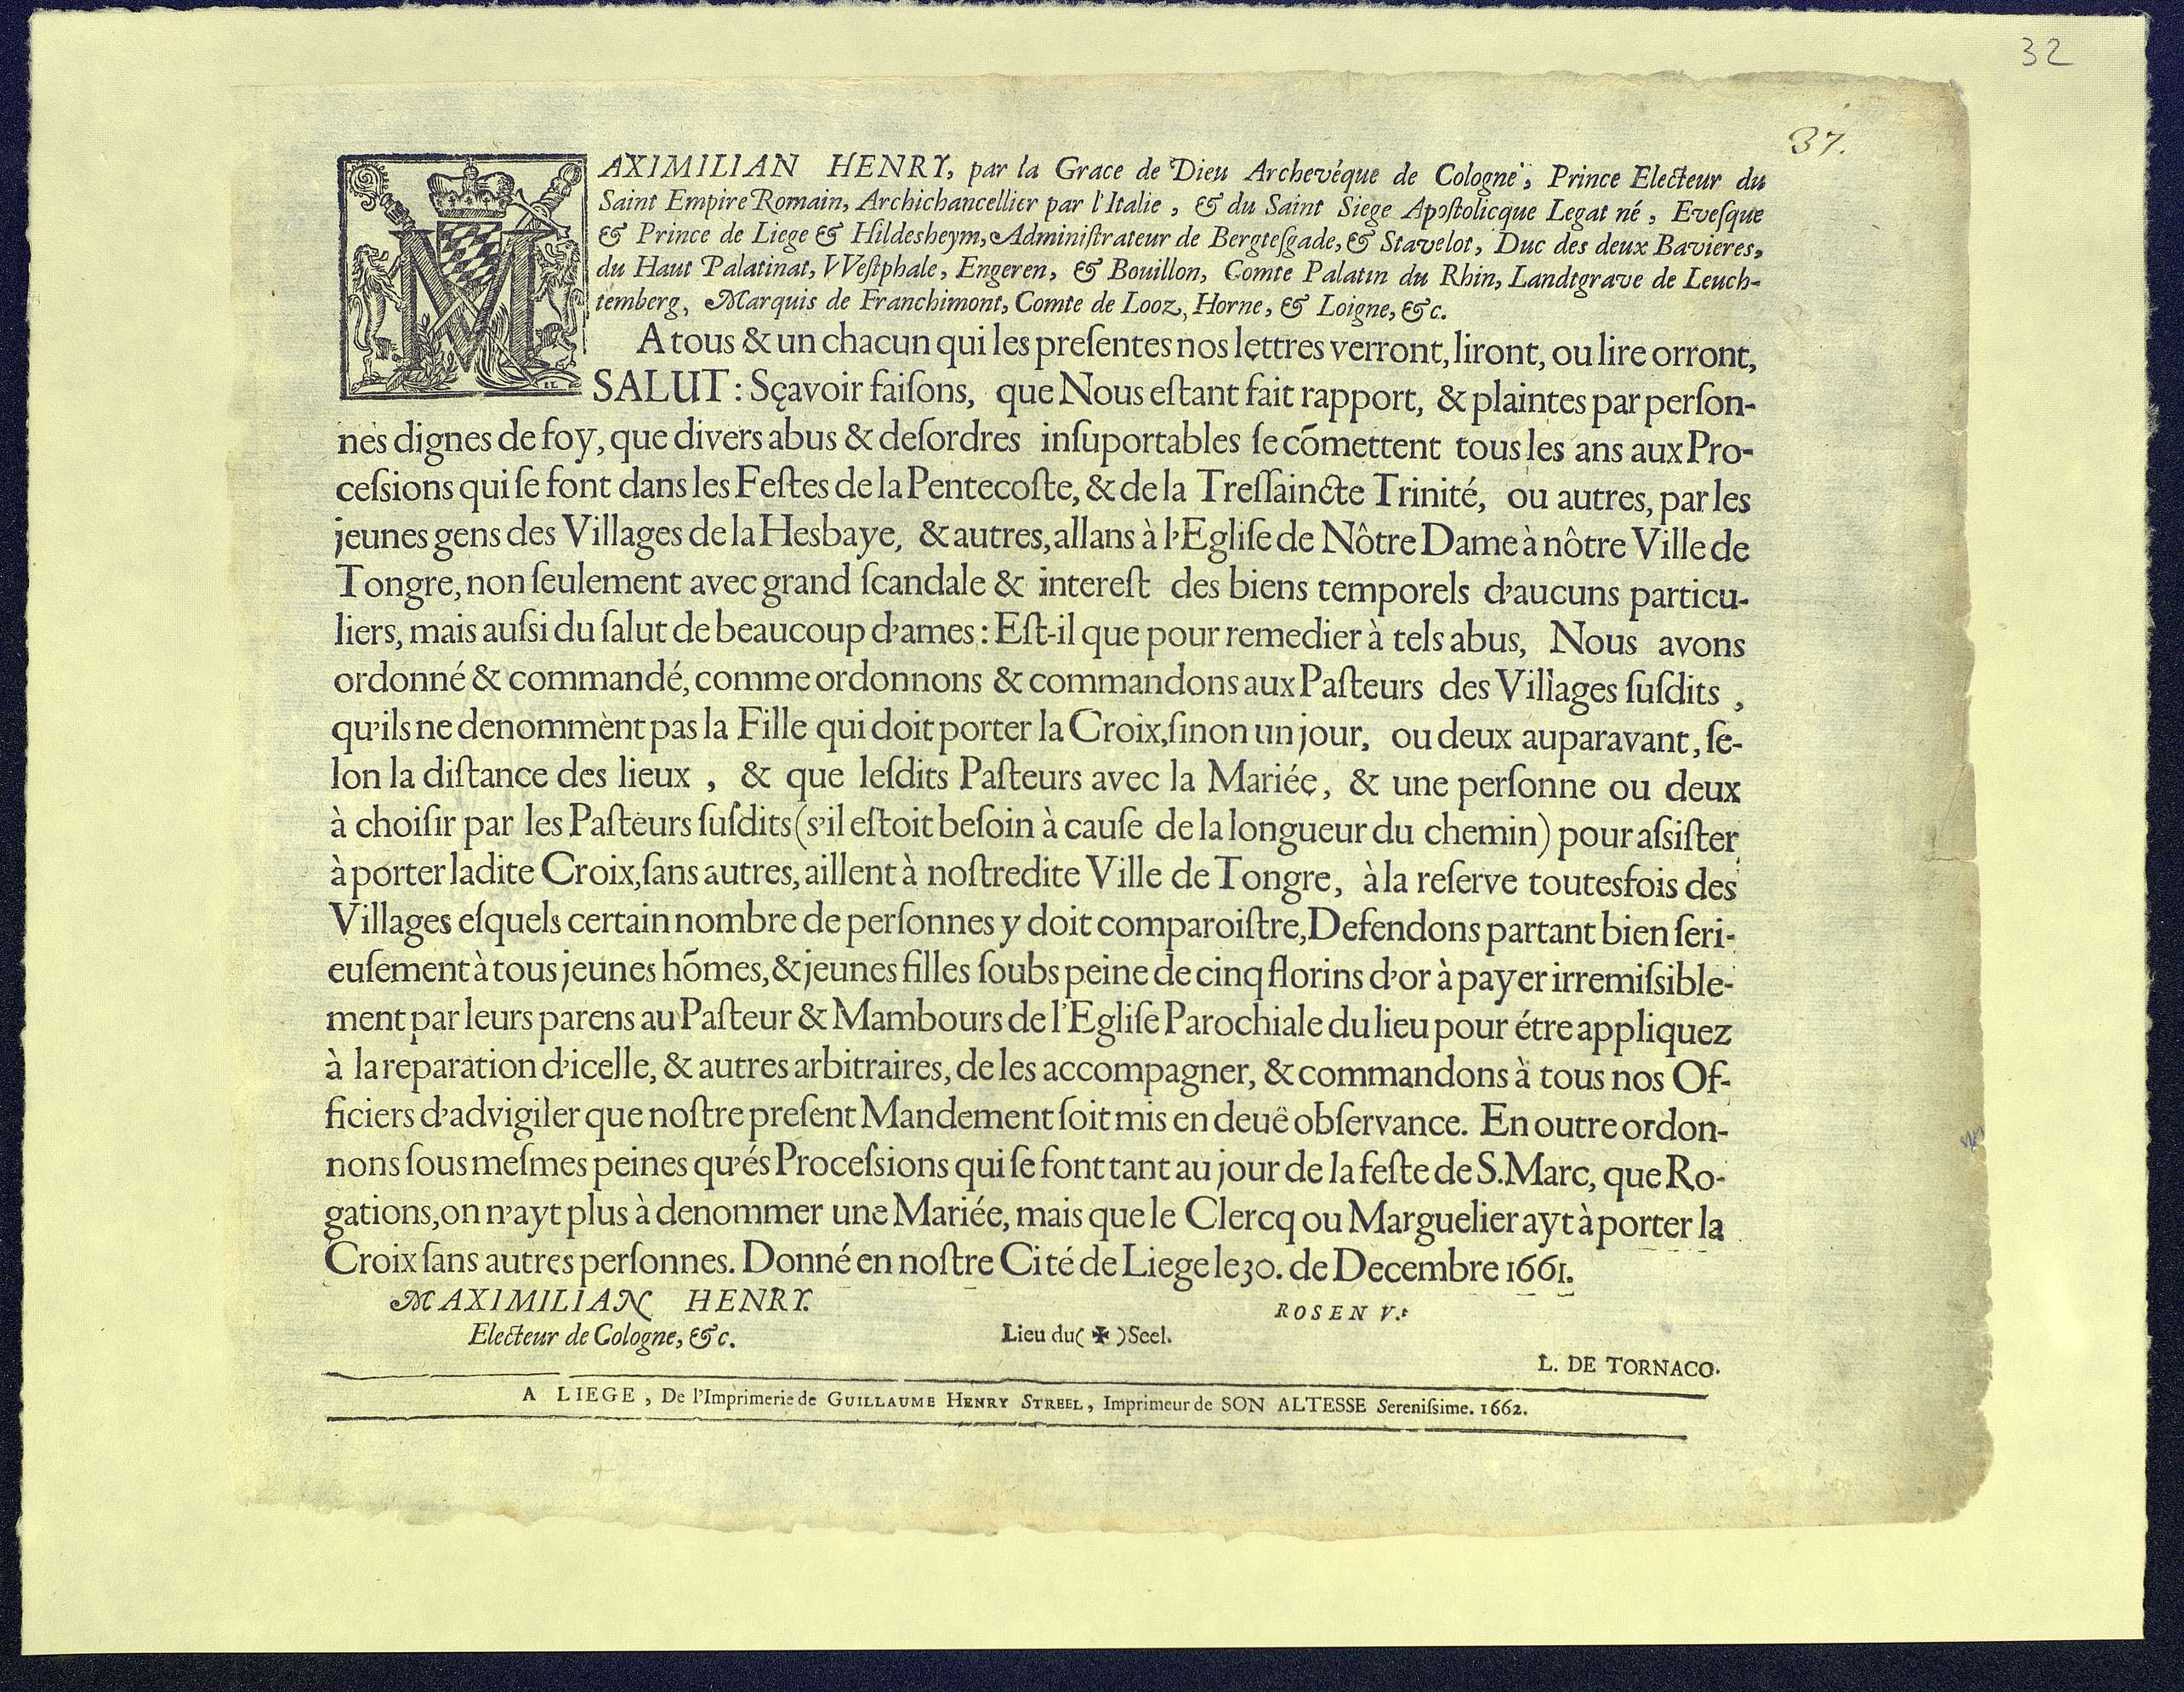 32
37.
MAXIMILIAN HENRY, par la Grace de Dieu Archevéque de Cologne, Prince Electeur du
Saint Empire Romain, Archichancellier par l'Italie, & du Saint Siege Apoſtolicque Legat né, Eveſque
& Prince de Liege & Hildesheym, Adminiſtrateur de Bergteſgade, & Stavelot, Duc des deux Bavieres,
du Haut Palatinat, VVeſtphale, Engeren, & Bouillon, Comte Palatin du Rhin, Landtgrave de Leuch-
temberg, Marquis de Franchimont, Comte de Looz, Horne, & Loigne, &c.
A tous & un chacun qui les preſentes nos lettres verront, liront, ou lire orront,
SALUT : Sçavoir faiſons, que Nous eſtant fait rapport, & plaintes par perſon-
nes dignes de foy, que divers abus & deſordres inſuportables ſe cõmettent tous les ans aux Pro-
ceſsions qui ſe font dans les Feſtes de la Pentecoſte, & de la Treſſaincte Trinité, ou autres, par les
jeunes gens des Villages de la Hesbaye, & autres, allans à l'Egliſe de Nôtre Dame à nôtre Ville de
Tongre, non ſeulement avec grand ſcandale & intereſt des biens temporels d'aucuns particu-
liers, mais auſsi du ſalut de beaucoup d'ames : Eſt-il que pour remedier à tels abus, Nous avons
ordonné & commandé, comme ordonnons & commandons aux Paſteurs des Villages ſuſdits,
qu'ils ne denommènt pas la Fille qui doit porter la Croix, ſinon un jour, ou deux auparavant, ſe-
lon la diſtance des lieux, & que leſdits Paſteurs avec la Mariée, & une perſonne ou deux
à choiſir par les Paſteurs ſuſdits (s'il eſtoit beſoin à cauſe de la longueur du chemin) pour aſsiſter
à porter ladite Croix, ſans autres, aillent à noſtredite Ville de Tongre, à la reſerve toutesfois des
Villages eſquels certain nombre de perſonnes y doit comparoiſtre, Defendons partant bien ſeri-
euſement à tous jeunes hõmes, & jeunes filles ſoubs peine de cinq florins d'or à payer irremiſsible-
ment par leurs parens au Paſteur & Mambours de l'Egliſe Parochiale du lieu pour étre appliquez
à la reparation d'icelle, & autres arbitraires, de les accompagner, & commandons à tous nos Of-
ficiers d'advigiler que noſtre preſent Mandement ſoit mis en deuë obſervance. En outre ordon-
nons ſous meſmes peines qu'és Proceſsions qui ſe font tant au jour de la feſte de S. Marc, que Ro-
gations, on n'ayt plus à denommer une Mariée, mais que le Clercq ou Marguelier ayt à porter la
Croix ſans autres perſonnes. Donné en noſtre Cité de Liege le 30. de Decembre 1661.
MAXIMILIAN HENRY.
ROSEN V.t
Electeur de Cologne, &c.
Lieu du( ✠ )Seel.
L. DE TORNACO.
A LIEGE, De l'Imprimerie de GUILLAUME HENRY STREEL, Imprimeur de SON ALTESSE Sereniſsime. 1662.